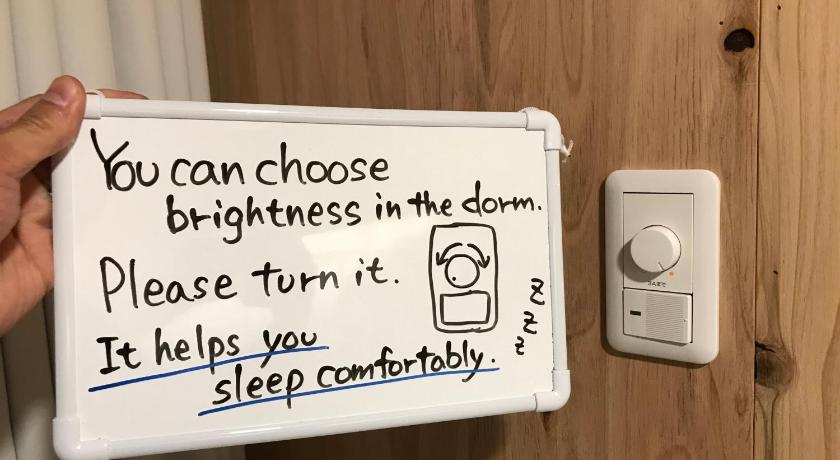 You can choose
brightness in the dorm.
Please turn it.
It helps you
sleep comfortably.
z
z
z